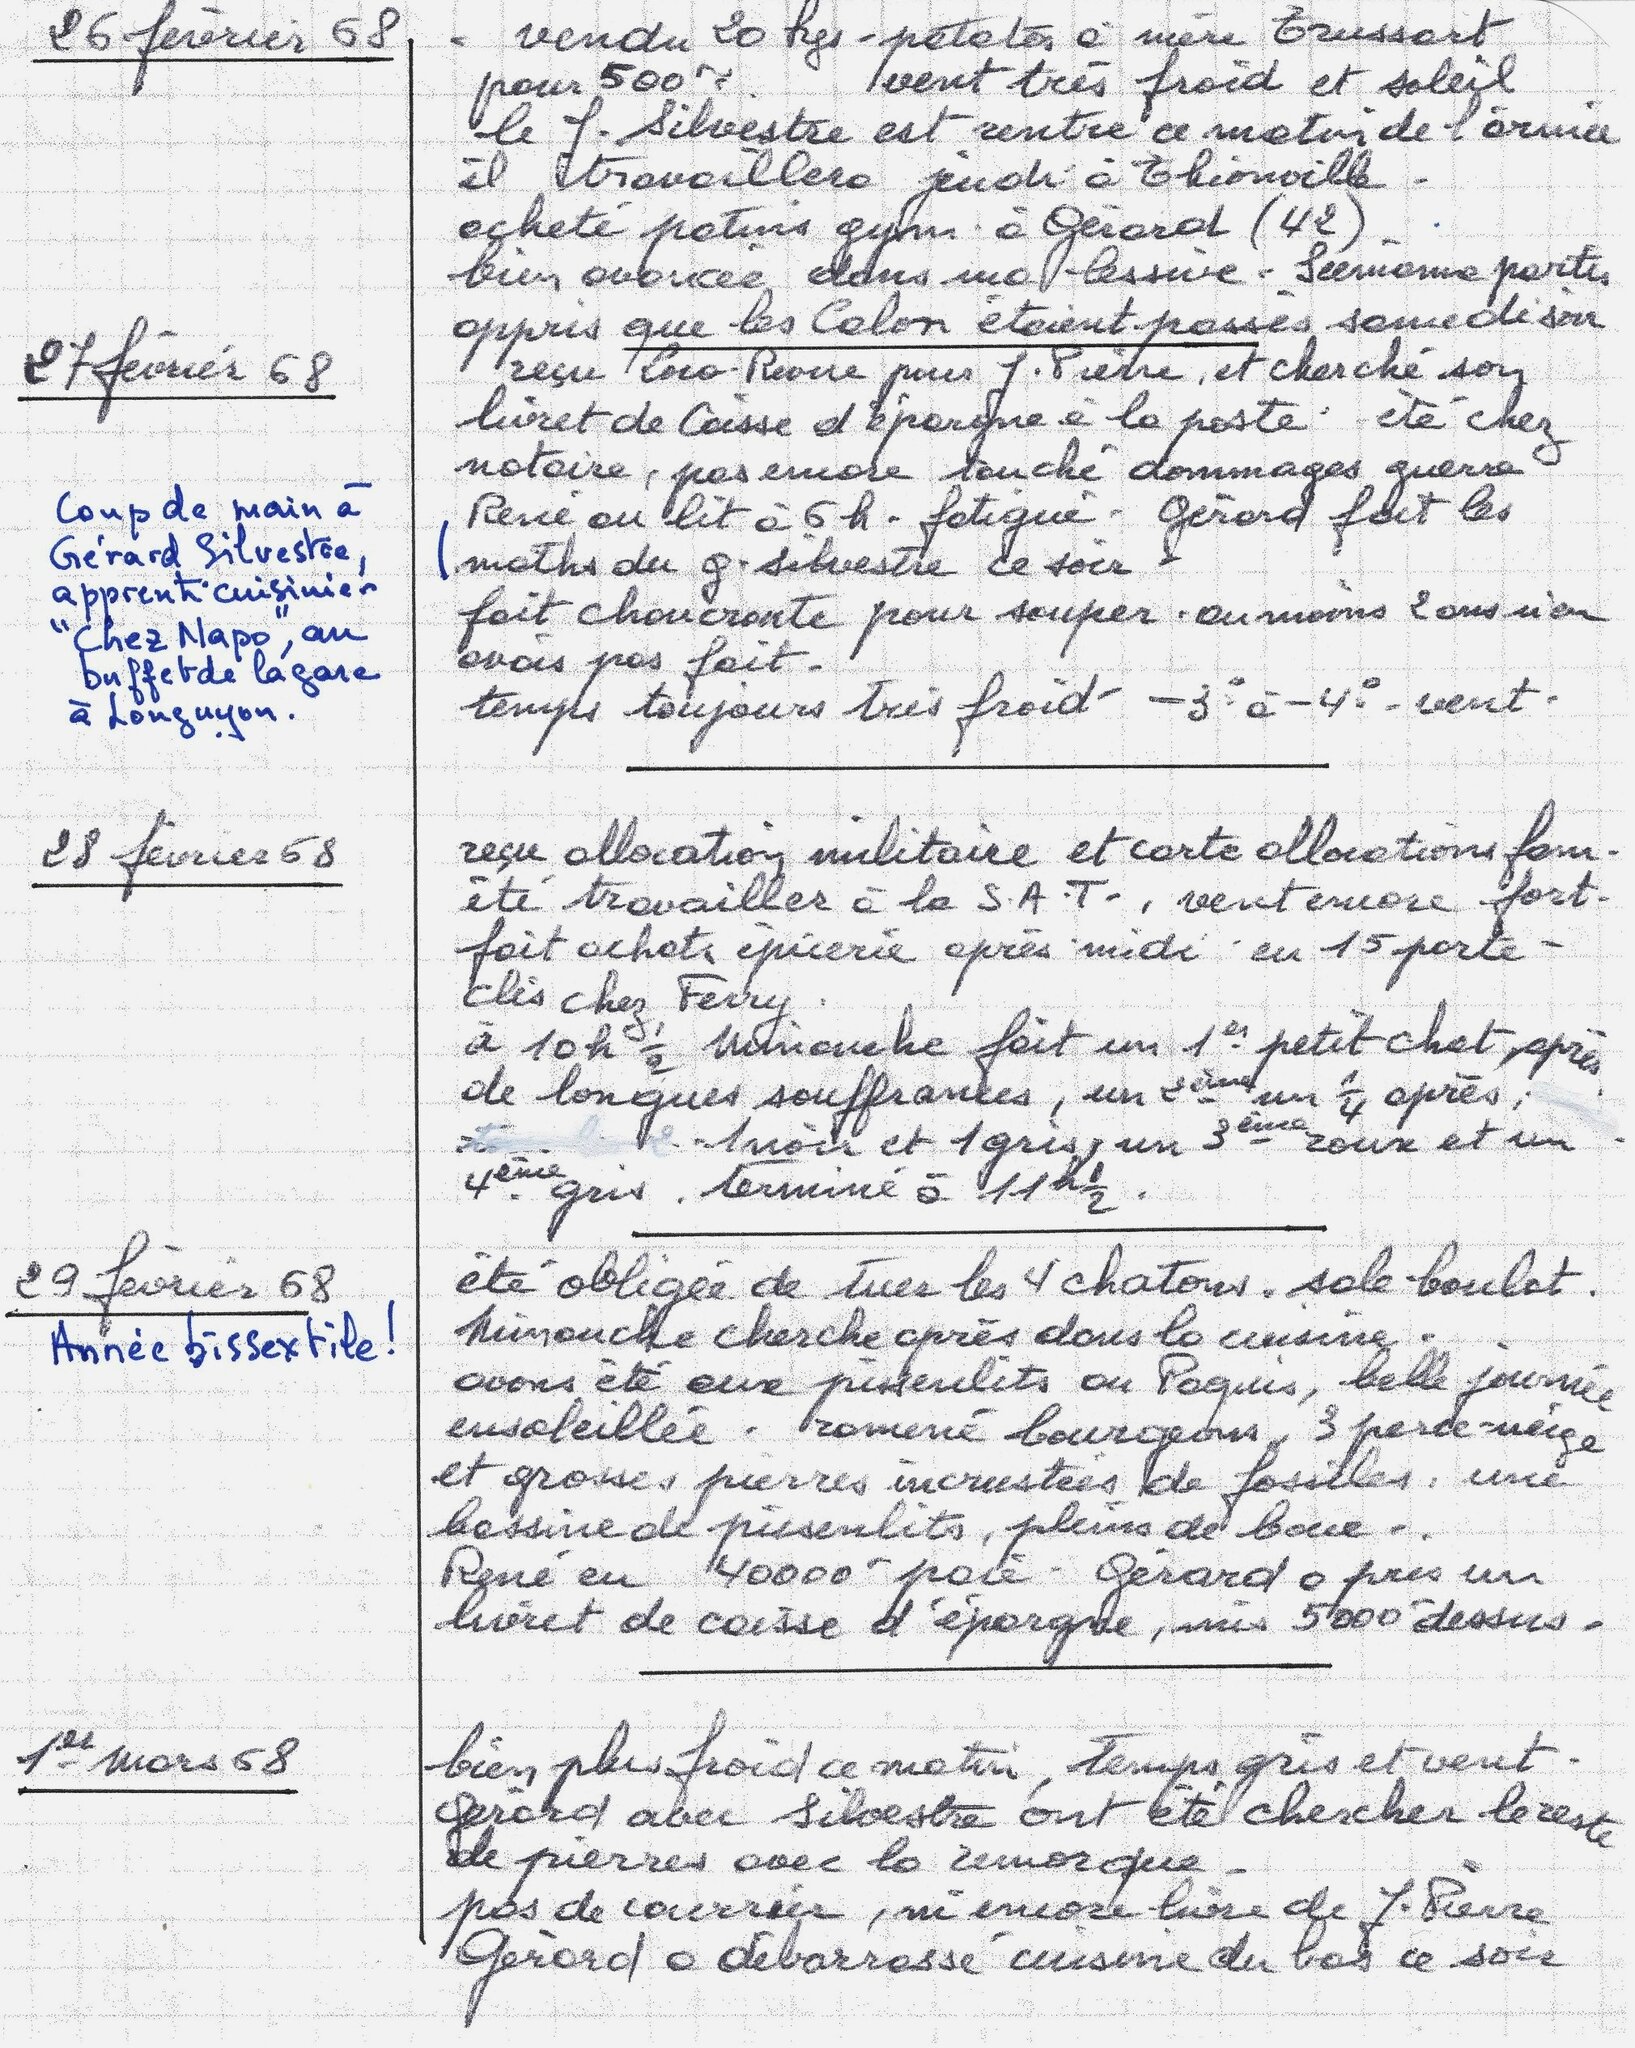 26 février 68
- vendu 20 kgs patates à mère Trussart
pour 500 F. vent très froid et soleil
le J. Silvestre est rentré ce matin de l'armée
il travaillera jeudi à Thionville -
acheté patins gym à Gérard (42)
bien avancée dans ma lessive -
appris que les Colon étaient passés samedi soir
27 février 68
reçu pour J. Pierre, et cherché son
livret de Caisse d'épargne à la poste. été chez
notaire, pas encore touché dommages guerre
René au lit à 6 h - fatigué - Gérard fait les
maths du g. Silvestre ce soir -
fait choucroute pour souper. au moins 2 ans n'en
avais pas fait -
temps toujours très froid - -3° à -4° - vent -
Coup de main à
Gérard Silvestre,
apprenti cuisinier
"Chez Napo", au
buffet de la gare
à Longuyon.
28 février 68
reçu allocation militaire et carte allocations fam.
été travailler à la S.A.T., vent encore fort -
fait achats épicerie après-midi eu 15 porte-
clés chez Ferry.
à 10h 1/2 Mimouche fait un 1er petit chat, après
de longues souffrances, un 2ème un 1/4 après,
1 noir et 1 gris, un 3ème roux et un
4ème gris. terminé à 11h 1/2.
29 février 68
Année bissextile!
été obligée de tuer les 4 chatons. sale boulot.
Mimouche cherche après dans la cuisine -
avons été aux pissenlits au Paquis, belle journée
ensoleillée. ramené bourgeons, 3 perce-neige
et grosses pierres incrustées de fossiles, une
bassine de pissenlits, pleins de boue -
René eu 40000 F paie - Gérard a pris un
livret de caisse d'épargne, mis 5000 F dessus -
1er Mars 68
bien plus froid ce matin, temps gris et vent -
Gérard avec Silvestre ont été chercher le reste
de pierres avec la remorque -
pas de courrier, ni encore livre de J. Pierre
Gérard a débarrassé cuisine du bas ce soir